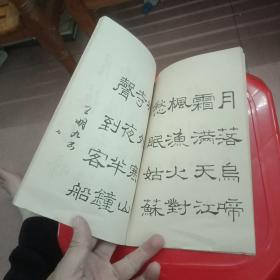 月落烏啼
霜滿天江
楓漁火對
愁眠姑蘇
外寒山
寺夜半鐘
聲到客船